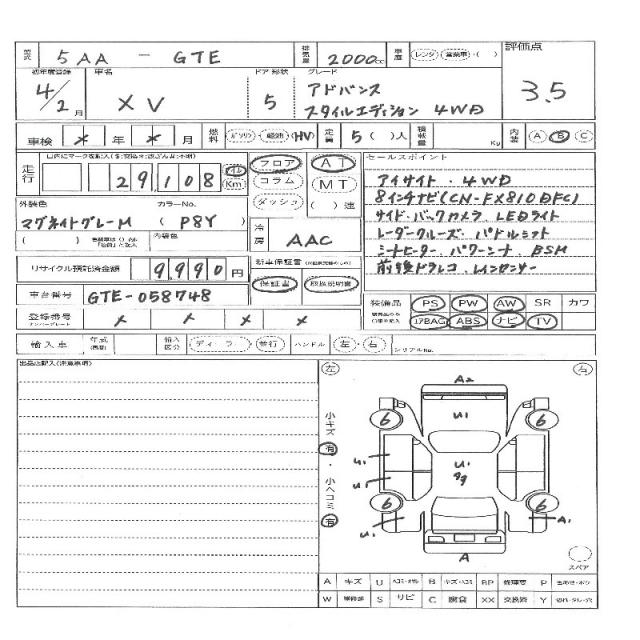 型式 5AA - GTE 排気量 2000cc 車歴 レンタ・営業車・( ) 評価点
3.5
初年度登録 4/2月 車名 XV ドア 形状 5 グレード アドバンス
スタイルエディション 4WD
車検 * 年 * 月 燃料 ガソリン・軽油・(HV) 定員 5( )人 積載量 Kg 内装 A B C
走行 29,108 マイル Km フロア コラム ダッシュ AT MT ( )速
セールスポイント
アイサイト・4WD
8インチナビ(CN-FX810DFC)
サイド・バックカメラ LEDライト
レーダークルーズ・パドルシフト
シートヒーター・パワーシート BSM
前後ドラレコ レインセンサー
外装色 マグネタイトグレーM カラーNo. ( P8Y )
( ) 内装色
冷房 AAC
リサイクル預託済金額 9,990円
新車保証書
保証書 取扱説明書
車台番号 GTE-058748
装備品 PS PW AW SR カワ
エアBAG ABS ナビ TV
登録番号 ナンバープレート × × × ×
輸入車 年式 輸入区分 ディーラー・並行 ハンドル 左・右 シリアルNo.
出品店記入(注意事項)
左 右
小キズ 有・小ヘコミ 有
A2
U1
6 6
U1 U1
U1
6 6
U1 A1
A
スペア
A キズ U B RP P
W S リビ C 腐食 XX 交換済 Y